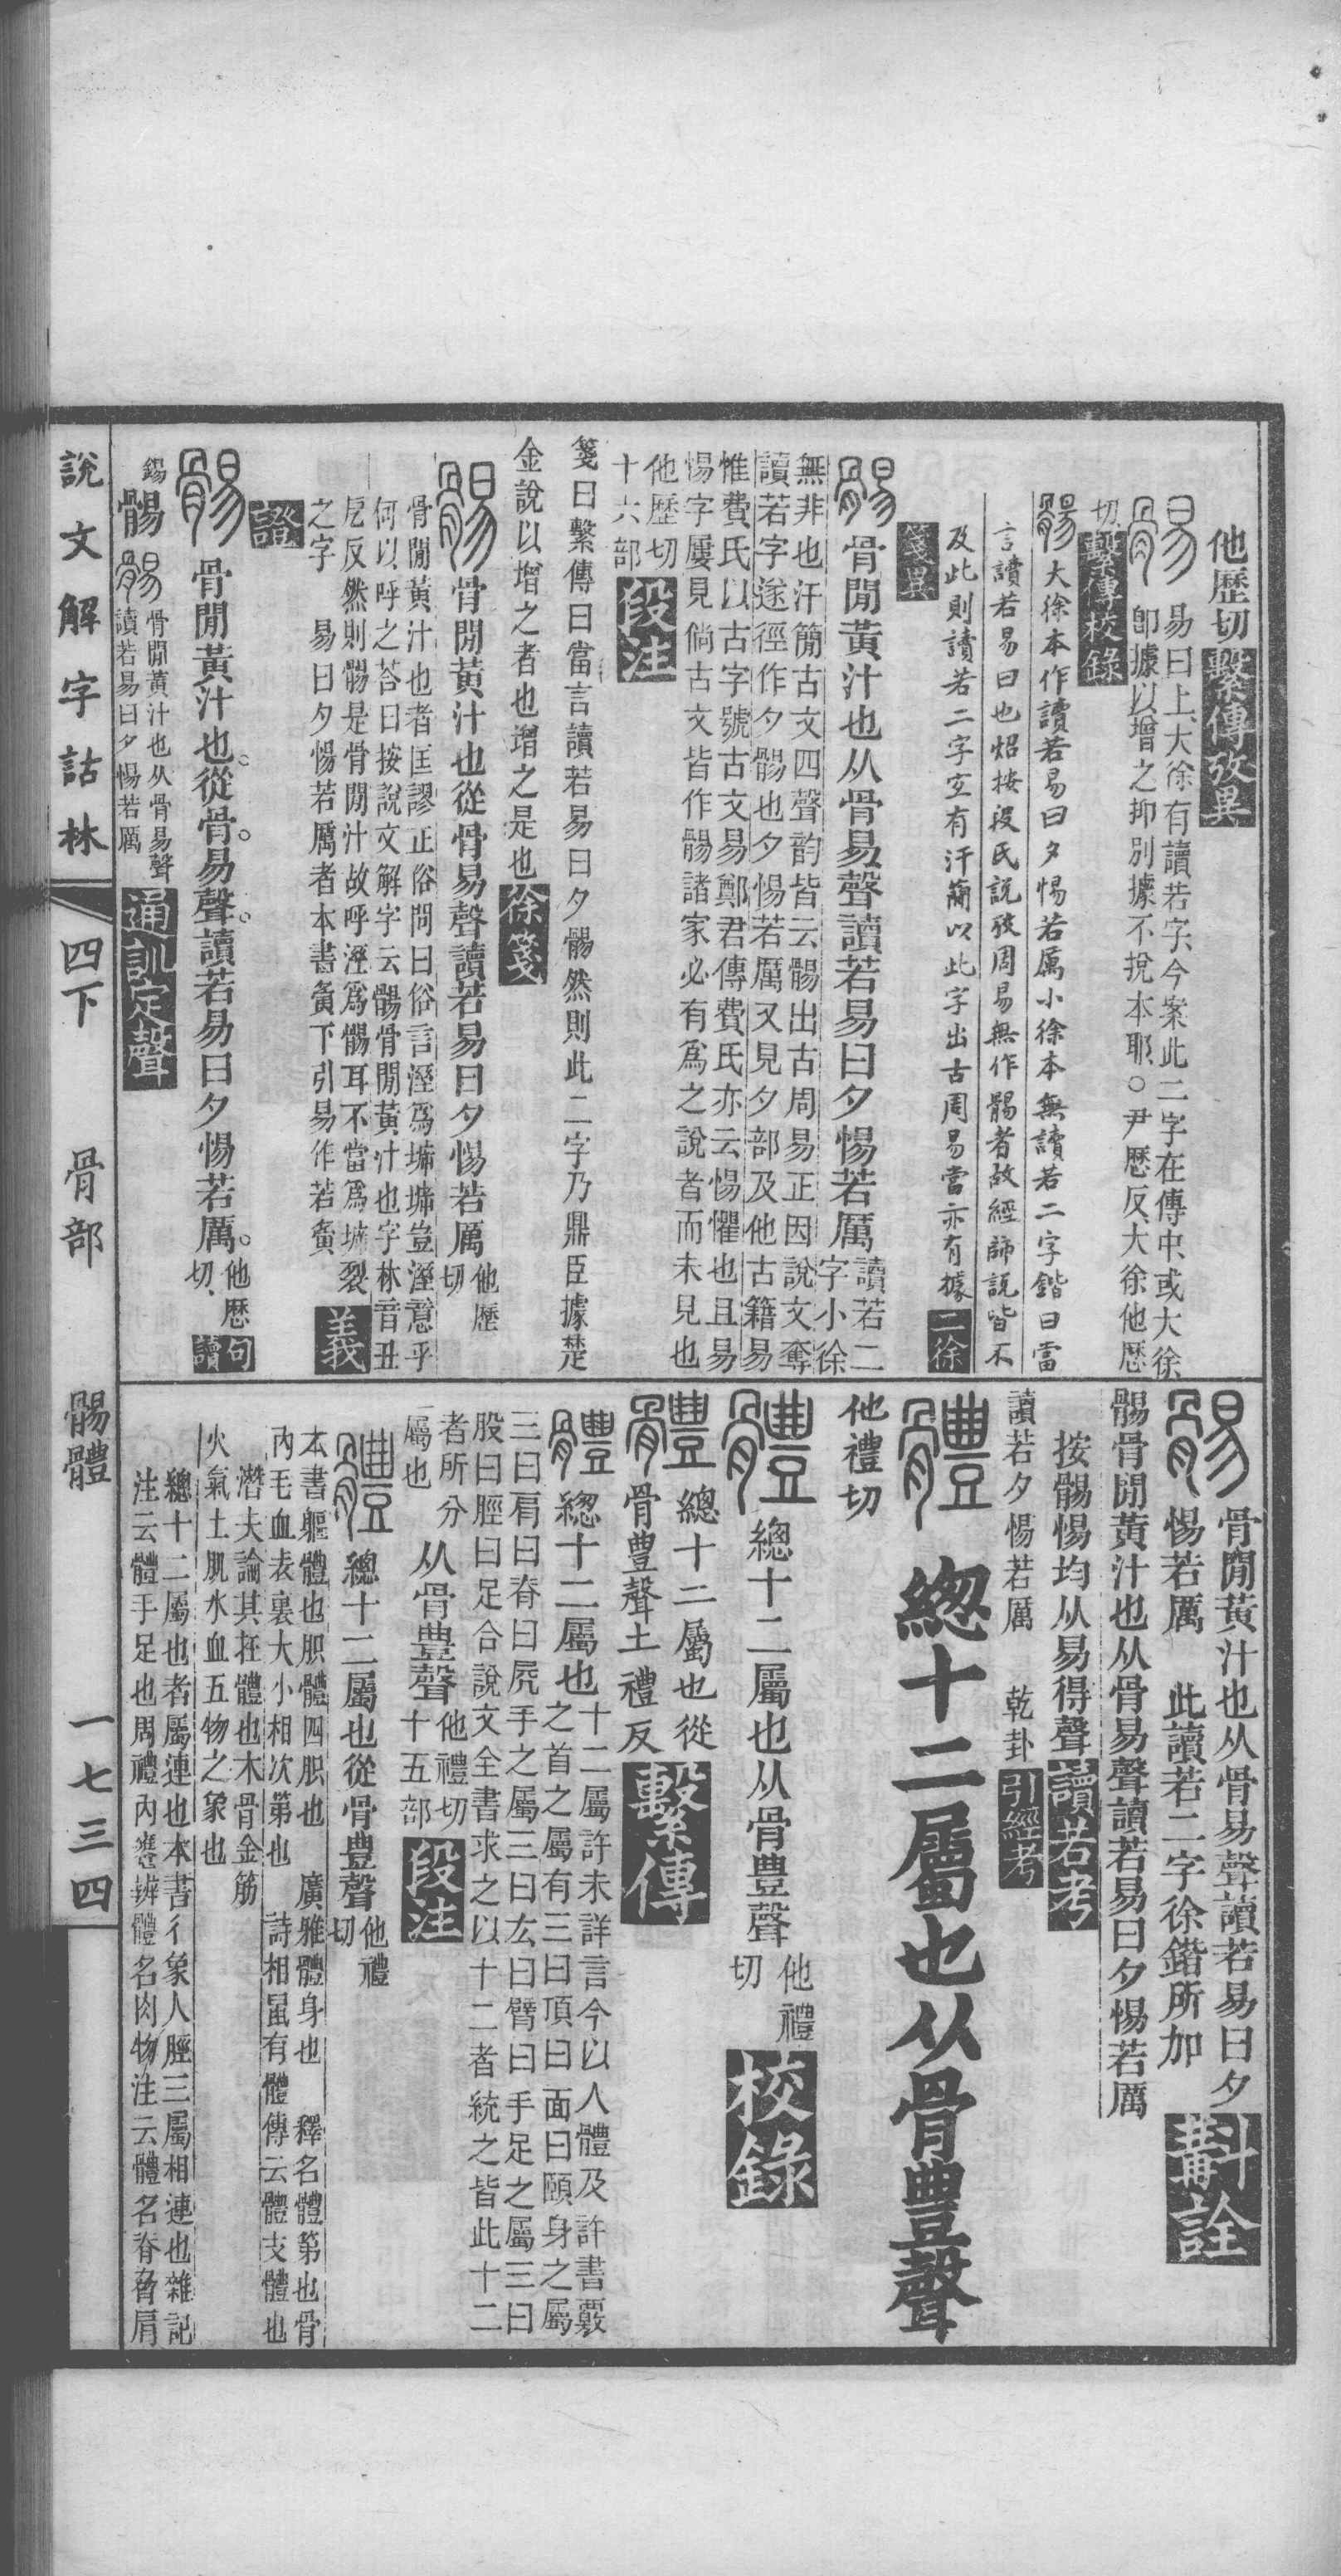 他歷切繫傳攷異
易曰上大徐有讀若字今案此二字在傳中或大徐
卽據以增之抑別據不挩本耶○尹歷反大徐他歷
切繫傳校錄
大徐本作讀若易曰夕惕若厲小徐本無讀若二字鍇曰當
言讀若易曰也炤按段氏說攷周易無作䯜者故經師說皆不
及此則讀若二字宐有汗簡以此字出古周易當亦有據二徐
箋異
骨閒黃汁也从骨易聲讀若易曰夕惕若厲讀若二
字小徐
無非也汗簡古文四聲韵皆云䯜出古周易正因說文奪
讀若字遂徑作夕䯜也夕惕若厲又見夕部及他古籍易
惟費氏以古字號古文易鄭君傳費氏亦云惕懼也且易
惕字屢見倘古文皆作䯜諸家必有爲之說者而未見也
他歷切
十六部段注
箋曰繫傳曰當言讀若易曰夕䯜然則此二字乃鼎臣據楚
金說以增之者也增之是也徐箋
骨閒黃汁也從骨易聲讀若易曰夕惕若厲他歷
切
骨閒黃汁也者匡謬正俗問曰俗言溼爲墲墲豈溼意乎
何以呼之荅曰按說文解字云䯜骨閒黃汁也字林音丑
戹反然則䯜是骨閒汁故呼溼爲䯜耳不當爲墲裂
之字 易曰夕惕若厲者本書夤下引易作若夤義
證
骨閒黃汁也從骨易聲讀若易曰夕惕若厲他歷
切句
讀
錫䯜骨閒黃汁也从骨易聲
讀若易曰夕惕若厲通訓定聲
骨閒黃汁也从骨易聲讀若易曰夕
惕若厲 此讀若二字徐鍇所加斠詮
䯜骨閒黃汁也从骨易聲讀若易曰夕惕若厲
按䯜惕均从易得聲讀若考
讀若夕惕若厲 乾卦引經考
總十二屬也从骨豊聲
他禮切
總十二屬也从骨豊聲他禮
切校錄
總十二屬也從
骨豊聲土禮反繫傳
總十二屬也十二屬許未詳言今以人體及許書覈
之首之屬有三曰頂曰面曰頤身之屬
三曰肩曰脊曰𡱂手之屬三曰厷曰臂曰手足之屬三曰
股曰脛曰足合說文全書求之以十二者統之皆此十二
者所分
屬也从骨豊聲他禮切
十五部段注
總十二屬也從骨豊聲他禮
切
本書軀體也胑體四胑也 廣雅體身也 釋名體第也骨
肉毛血表裏大小相次第也 詩相鼠有體傳云體支體也
潛夫論其在體也木骨金筋
火氣土肌水血五物之象也
總十二屬也者屬連也本書彳象人脛三屬相連也雜記
注云體手足也周禮內饔辨體名肉物注云體名脊脅肩
說文解字詁林 四下 骨部 䯜體 一七三四